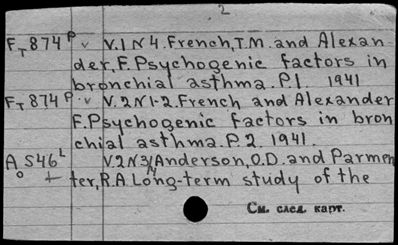 2
F T 874 P v V.1 N 4. French, T.M. and Alexan
der, F. Psychogenic factors in
bronchial asthma. P.1. 1941
F T 874 P v V. 2 N 1-2. French and Alexander
F. Psychogenic factors in bron
chial asthma. P.2. 1941.
A 546 L V.2 N 3/4 Anderson, O.D. and Parmen
o ter, R.A. Long-term study of the
См. след. карт.